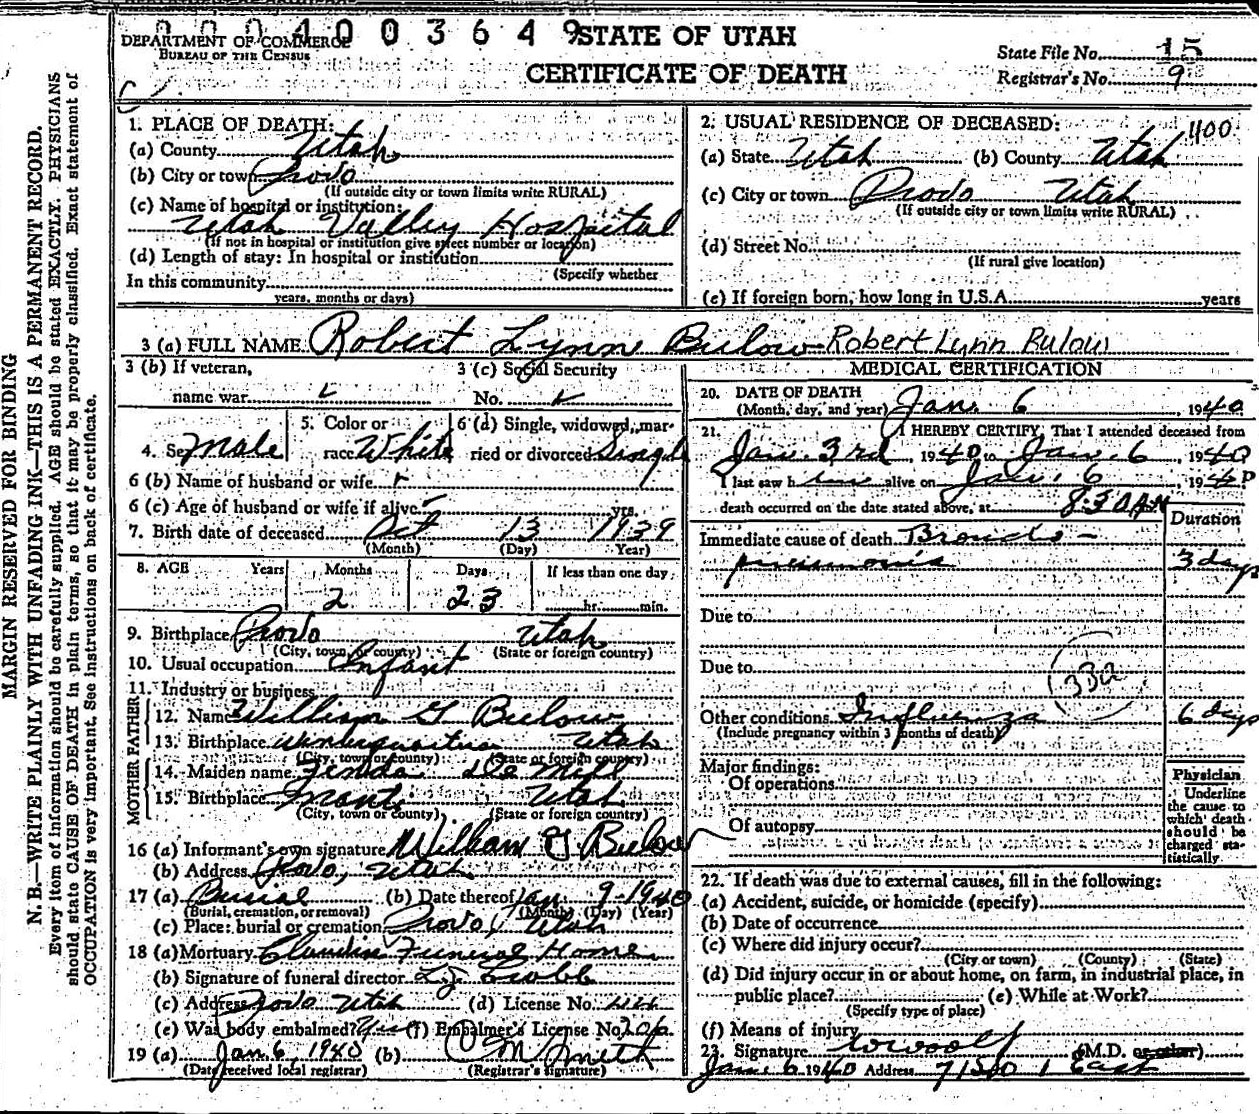 0004003649
STATE OF UTAH
DEPARTMENT OF COMMERCE
BUREAU OF THE CENSUS
CERTIFICATE OF DEATH
State File No. 15
Registrar's No. 9
MARGIN RESERVED FOR BINDING
N. B.—WRITE PLAINLY WITH UNFADING INK—THIS IS A PERMANENT RECORD.
Every item of information should be carefully supplied. AGE should be stated EXACTLY. PHYSICIANS
should state CAUSE OF DEATH in plain terms, so that it may be properly classified. Exact statement of
OCCUPATION is very important. See instructions on back of certificate.
1. PLACE OF DEATH:
(a) County Utah
(b) City or town Provo
(If outside city or town limits write RURAL)
(c) Name of hospital or institution:
Utah Valley Hospital
(If not in hospital or institution give street number or location)
(d) Length of stay: In hospital or institution
(Specify whether
In this community
years, months or days)
2. USUAL RESIDENCE OF DECEASED: 1100
(a) State Utah (b) County Utah
(c) City or town Provo Utah
(If outside city or town limits write RURAL)
(d) Street No.
(If rural give location)
(e) If foreign born, how long in U.S.A. years
3 (a) FULL NAME Robert Lynn Bulow Robert Lynn Bulow
3 (b) If veteran,
name war
3 (c) Social Security
No.
4. Sex Male
5. Color or
race White
6 (d) Single, widowed, mar-
ried or divorced Single
6 (b) Name of husband or wife
6 (c) Age of husband or wife if alive yrs.
7. Birth date of deceased Oct 13 1939
(Month) (Day) Year)
8. AGE Years Months Days If less than one day
2 23 hr. min.
9. Birthplace Provo Utah
(City, town, or county) (State or foreign country)
10. Usual occupation Infant
11. Industry or business
FATHER
12. Name William G Bulow
13. Birthplace Winterquarters Utah
(City, town or county) (State or foreign country)
MOTHER
14. Maiden name De Mill
15. Birthplace Manti Utah
(City, town or county) (State or foreign country)
16 (a) Informant's own signature William G. Bulow
(b) Address Provo, Utah
17 (a) Burial (b) Date thereof Jan. 9-1940
(Burial, cremation, or removal) (Month) (Day) (Year)
(c) Place: burial or cremation Provo, Utah
18 (a) Mortuary Claudin Funeral Home
(b) Signature of funeral director
(c) Address Provo Utah (d) License No.
(e) Was body embalmed? Yes (f) Embalmer's License No. 206
19 (a) Jan 6, 1940 (b) Smith
(Date received local registrar) (Registrar's signature)
MEDICAL CERTIFICATION
20. DATE OF DEATH
(Month, day, and year) Jan. 6, 1940
21. I HEREBY CERTIFY, That I attended deceased from
Jan. 3rd, 1940 to Jan. 6, 1940
I last saw him alive on Jan. 6, 1940
death occurred on the date stated above, at 8:30 A M
Duration
Immediate cause of death Broncho-
pneumonia 3 days
Due to
Due to
33a
Other conditions Influenza 6 days
(Include pregnancy within 3 months of death)
Major findings:
Of operations
Of autopsy
Physician
Underline
the cause to
which death
should be
charged sta-
tistically
22. If death was due to external causes, fill in the following:
(a) Accident, suicide, or homicide (specify)
(b) Date of occurrence
(c) Where did injury occur?
(City or town) (County) (State)
(d) Did injury occur in or about home, on farm, in industrial place, in
public place? (e) While at Work?
(Specify type of place)
(f) Means of injury
23. Signature W Woolf (M.D. or other)
Jan. 6 1940 Address East